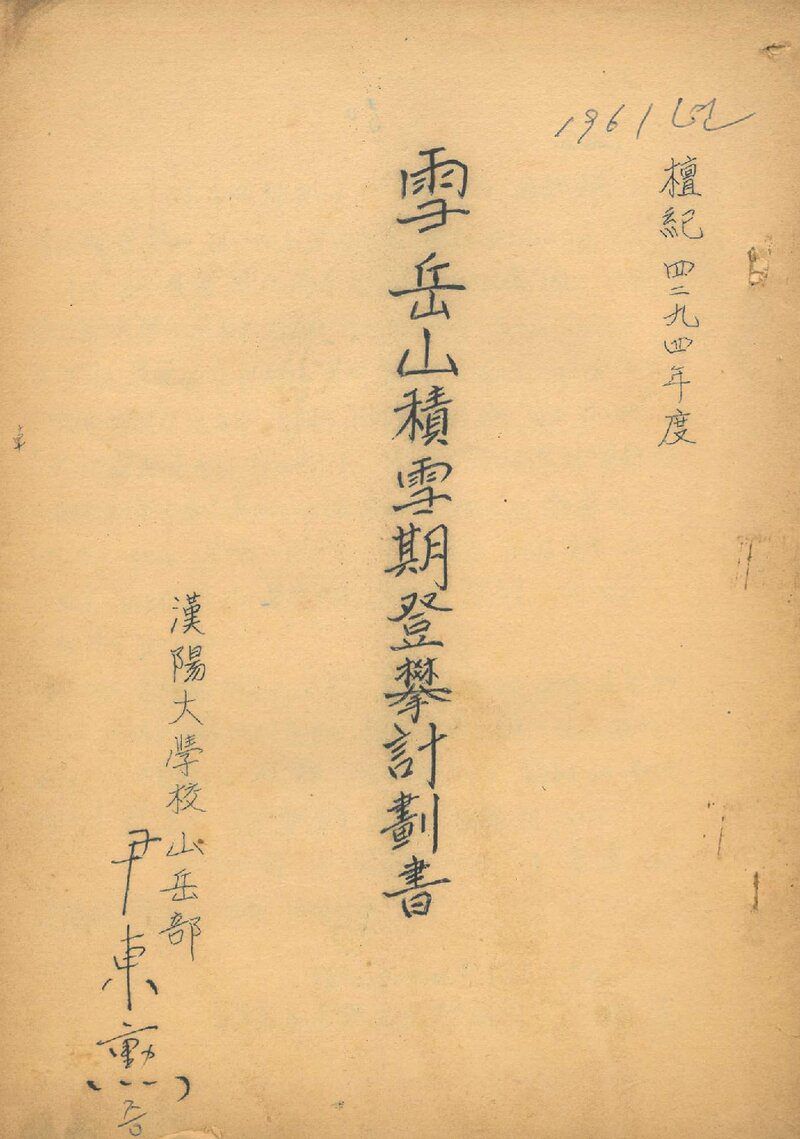 1961년
檀紀 四二九四年度
雪岳山積雪期登攀計劃書
漢陽大學校 山岳部
尹東勳